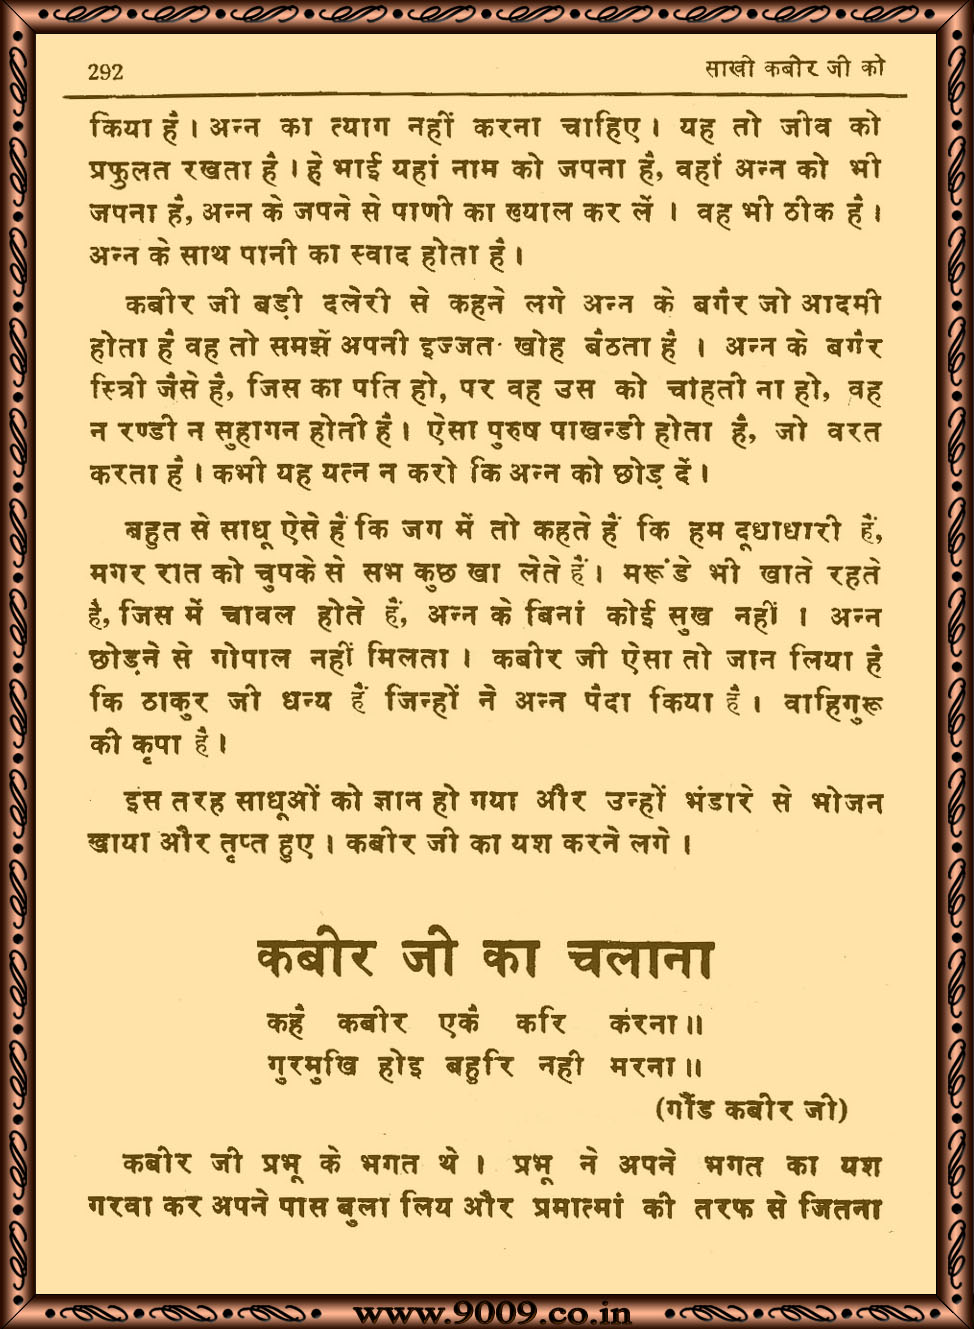 292 साखी कबीर जी को
किया है । अन्न का त्याग नहीं करना चाहिए । यह तो जीव को
प्रफुलत रखता है । हे भाई यहां नाम को जपना है, वहां अन्न को भी
जपना है, अन्न के जपने से पाणी का ख्याल कर लें । वह भी ठीक है ।
अन्न के साथ पानी का स्वाद होता है ।
कबीर जी बड़ी दलेरी से कहने लगे अन्न के बगैर जो आदमी
होता है वह तो समझें अपनी इज्जत खोह बैठता है । अन्न के बगैर
स्त्रिी जैसे है, जिस का पति हो, पर वह उस को चाहती ना हो, वह
न रण्डी न सुहागन होती है । ऐसा पुरुष पाखन्डी होता है, जो वरत
करता है । कभी यह यत्न न करो कि अन्न को छोड़ दें ।
बहुत से साधू ऐसे हैं कि जग में तो कहते हैं कि हम दूधाधारी हैं,
मगर रात को चुपके से सभ कुछ खा लेते हैं । मरूंडे भी खाते रहते
है, जिस में चावल होते हैं, अन्न के बिनां कोई सुख नहीं । अन्न
छोड़ने से गोपाल नहीं मिलता । कबीर जी ऐसा तो जान लिया है
कि ठाकुर जी धन्य हैं जिन्हों ने अन्न पैदा किया है । वाहिगुरू
की कृपा है ।
इस तरह साधूओं को ज्ञान हो गया और उन्हों भंडारे से भोजन
खाया और तृप्त हुए । कबीर जी का यश करने लगे ।
कबीर जी का चलाना
कहै कबीर एकै करि करना ॥
गुरमुखि होइ बहुरि नही मरना ॥
(गौंड कबीर जी)
कबीर जी प्रभू के भगत थे । प्रभू ने अपने भगत का यश
गरवा कर अपने पास बुला लिय और प्रमात्मां की तरफ से जितना
www.9009.co.in